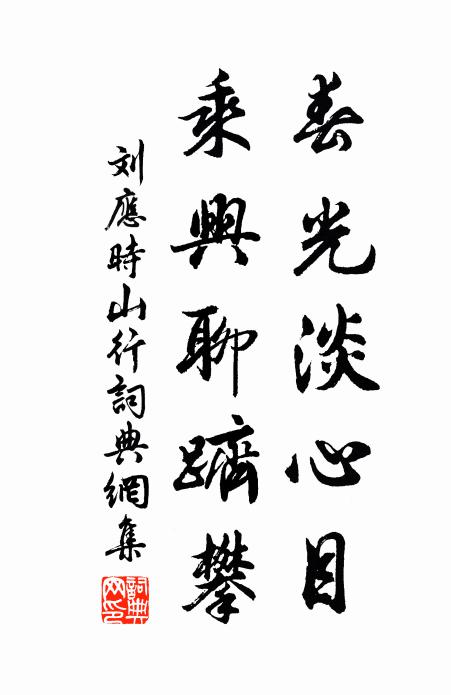 春光淡心目
乘興聊躋攀
刘應時山行詞典網集
詞典網印